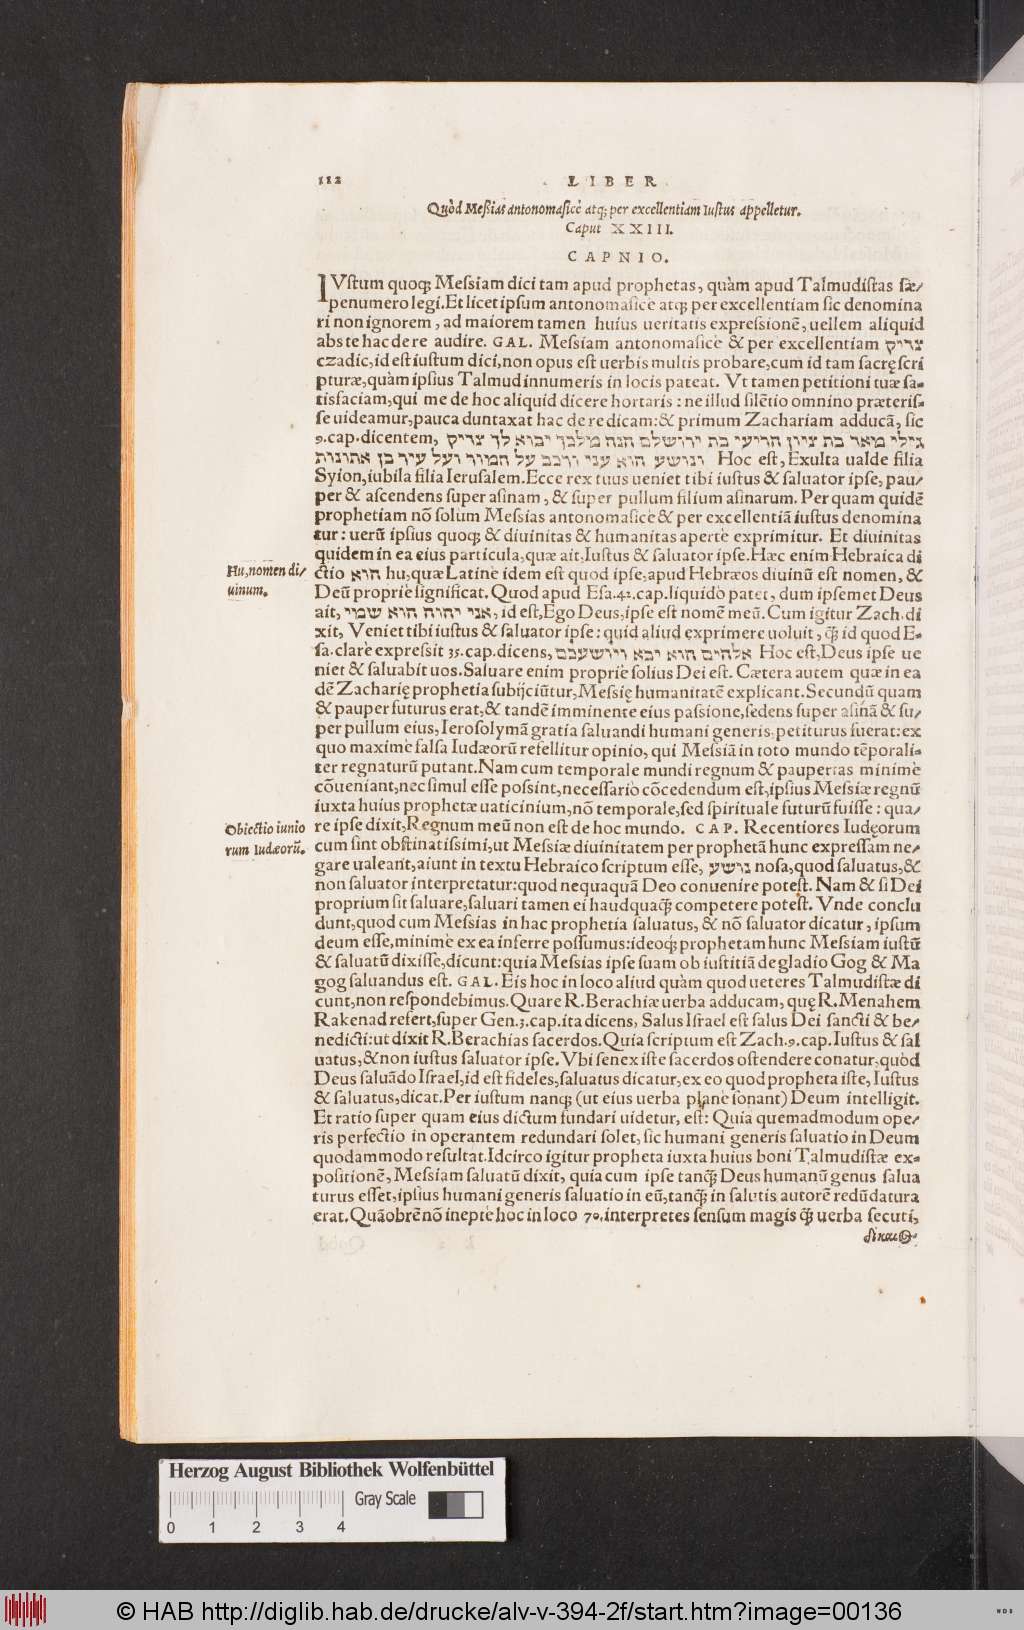 112 LIBER
Quòd Meßias antonomasicè atq; per excellentiam Iustus appelletur.
Caput XXIII.
CAPNIO.
IVstum quoq; Messiam dici tam apud prophetas, quàm apud Talmudistas sæ/
penumero legi. Et licet ipsum antonomasicè atq; per excellentiam sic denomina
ri non ignorem, ad maiorem tamen huius ueritatis expressionē, uellem aliquid
abs te hac de re audire. GAL. Messiam antonomasicè & per excellentiam צדיק
czadic, id est iustum dici, non opus est uerbis multis probare, cum id tam sacrę scri
pturæ, quàm ipsius Talmud innumeris in locis pateat. Vt tamen petitioni tuæ sa-
tisfaciam, qui me de hoc aliquid dicere hortaris: ne illud silētio omnino præteris-
se uideamur, pauca duntaxat hac de re dicam: & primum Zachariam adducā, sic
9. cap. dicentem, גילי מאד בת ציון הריעי בת ירושלם הנה מלכך יבוא לך צדיק
ונושע הוא עני ורכב על חמור ועל עיר בן אתונות Hoc est, Exulta ualde filia
Syion, iubila filia Ierusalem. Ecce rex tuus ueniet tibi iustus & saluator ipse, pau/
per & ascendens super asinam, & super pullum filium asinarum. Per quam quidē
prophetiam nō solum Messias antonomasicè & per excellentiā iustus denomina
tur: uerū ipsius quoq; & diuinitas & humanitas apertè exprimitur. Et diuinitas
quidem in ea eius particula, quæ ait, Iustus & saluator ipse. Hæc enim Hebraica di
Hu, nomen di/
uinum.
ctio הוא hu, quæ Latinè idem est quod ipse, apud Hebræos diuinū est nomen, &
Deū propriè significat. Quod apud Esa. 42. cap. liquidò patet, dum ipsemet Deus
ait, אני יהוה הוא שמי, id est, Ego Deus, ipse est nomē meū. Cum igitur Zach. di
xit, Veniet tibi iustus & saluator ipse: quid aliud exprimere uoluit, q̃ id quod E-
sa. clarè expressit 35. cap. dicens, אלהים הוא יבא ויושעכם Hoc est, Deus ipse ue
niet & saluabit uos. Saluare enim propriè solius Dei est. Cætera autem quæ in ea
dē Zacharię prophetia subijciūtur, Messię humanitatē explicant. Secundū quam
& pauper futurus erat, & tandē imminente eius passione, sedens super asinā & su/
per pullum eius, Ierosolymā gratia saluandi humani generis, petiturus fuerat: ex
quo maximè falsa Iudæorū refellitur opinio, qui Messiā in toto mundo tēporali-
ter regnaturū putant. Nam cum temporale mundi regnum & paupertas minimè
cōueniant, nec simul esse possint, necessariò cōcedendum est, ipsius Messiæ regnū
iuxta huius prophetæ uaticinium, nō temporale, sed spirituale futurū fuisse: qua/
Obiectio iunio
rum Iudæorū.
re ipse dixit, Regnum meū non est de hoc mundo. CAP. Recentiores Iudęorum
cum sint obstinatissimi, ut Messiæ diuinitatem per prophetā hunc expressam ne/
gare ualeant, aiunt in textu Hebraico scriptum esse, נושע nosa, quod saluatus, &
non saluator interpretatur: quod nequaquā Deo conuenire potest. Nam & si Dei
proprium sit saluare, saluari tamen ei haudquaq̃ competere potest. Vnde conclu
dunt, quod cum Messias in hac prophetia saluatus, & nō saluator dicatur, ipsum
deum esse, minimè ex ea inferre possumus: ideoq; prophetam hunc Messiam iustū
& saluatū dixisse, dicunt: quia Messias ipse suam ob iustitiā de gladio Gog & Ma
gog saluandus est. GAL. Eis hoc in loco aliud quàm quod ueteres Talmudistæ di
cunt, non respondebimus. Quare R. Berachiæ uerba adducam, quę R. Menahem
Rakenad refert, super Gen. 3. cap. ita dicens, Salus Israel est salus Dei sancti & be/
nedicti: ut dixit R. Berachias sacerdos. Quia scriptum est Zach. 9. cap. Iustus & sal
uatus, & non iustus saluator ipse. Vbi senex iste sacerdos ostendere conatur, quòd
Deus saluādo Israel, id est fideles, saluatus dicatur, ex eo quod propheta iste, Iustus
& saluatus, dicat. Per iustum nanq; (ut eius uerba planè sonant) Deum intelligit.
Et ratio super quam eius dictum fundari uidetur, est: Quia quemadmodum ope/
ris perfectio in operantem redundari solet, sic humani generis saluatio in Deum
quodammodo resultat. Idcirco igitur propheta iuxta huius boni Talmudistæ ex-
positionē, Messiam saluatū dixit, quia cum ipse tanq̃ Deus humanū genus salua
turus esset, ipsius humani generis saluatio in eū, tanq̃ in salutis autorē redūdatura
erat. Quāobrē nō ineptè hoc in loco 70. interpretes sensum magis q̃ uerba secuti,
Herzog August Bibliothek Wolfenbüttel
Gray Scale
0 1 2 3 4
© HAB http://diglib.hab.de/drucke/alv-v-394-2f/start.htm?image=00136